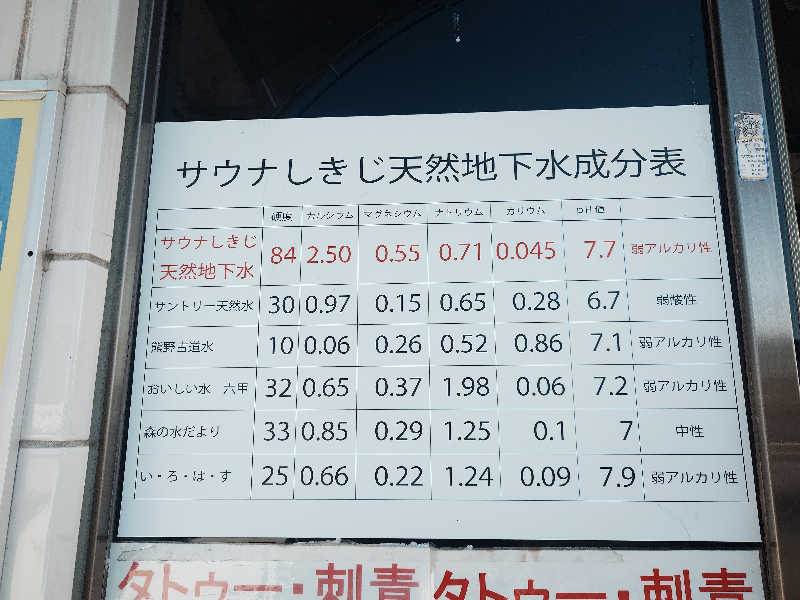 サウナしきじ天然地下水成分表
硬度 カルシウム マグネシウム ナトリウム カリウム pH値
サウナしきじ
天然地下水 84 2.50 0.55 0.71 0.045 7.7 弱アルカリ性
サントリー天然水 30 0.97 0.15 0.65 0.28 6.7 弱酸性
熊野古道水 10 0.06 0.26 0.52 0.86 7.1 弱アルカリ性
おいしい水 六甲 32 0.65 0.37 1.98 0.06 7.2 弱アルカリ性
森の水だより 33 0.85 0.29 1.25 0.1 7 中性
い・ろ・は・す 25 0.66 0.22 1.24 0.09 7.9 弱アルカリ性
タトゥー・刺青 タトゥー・刺青